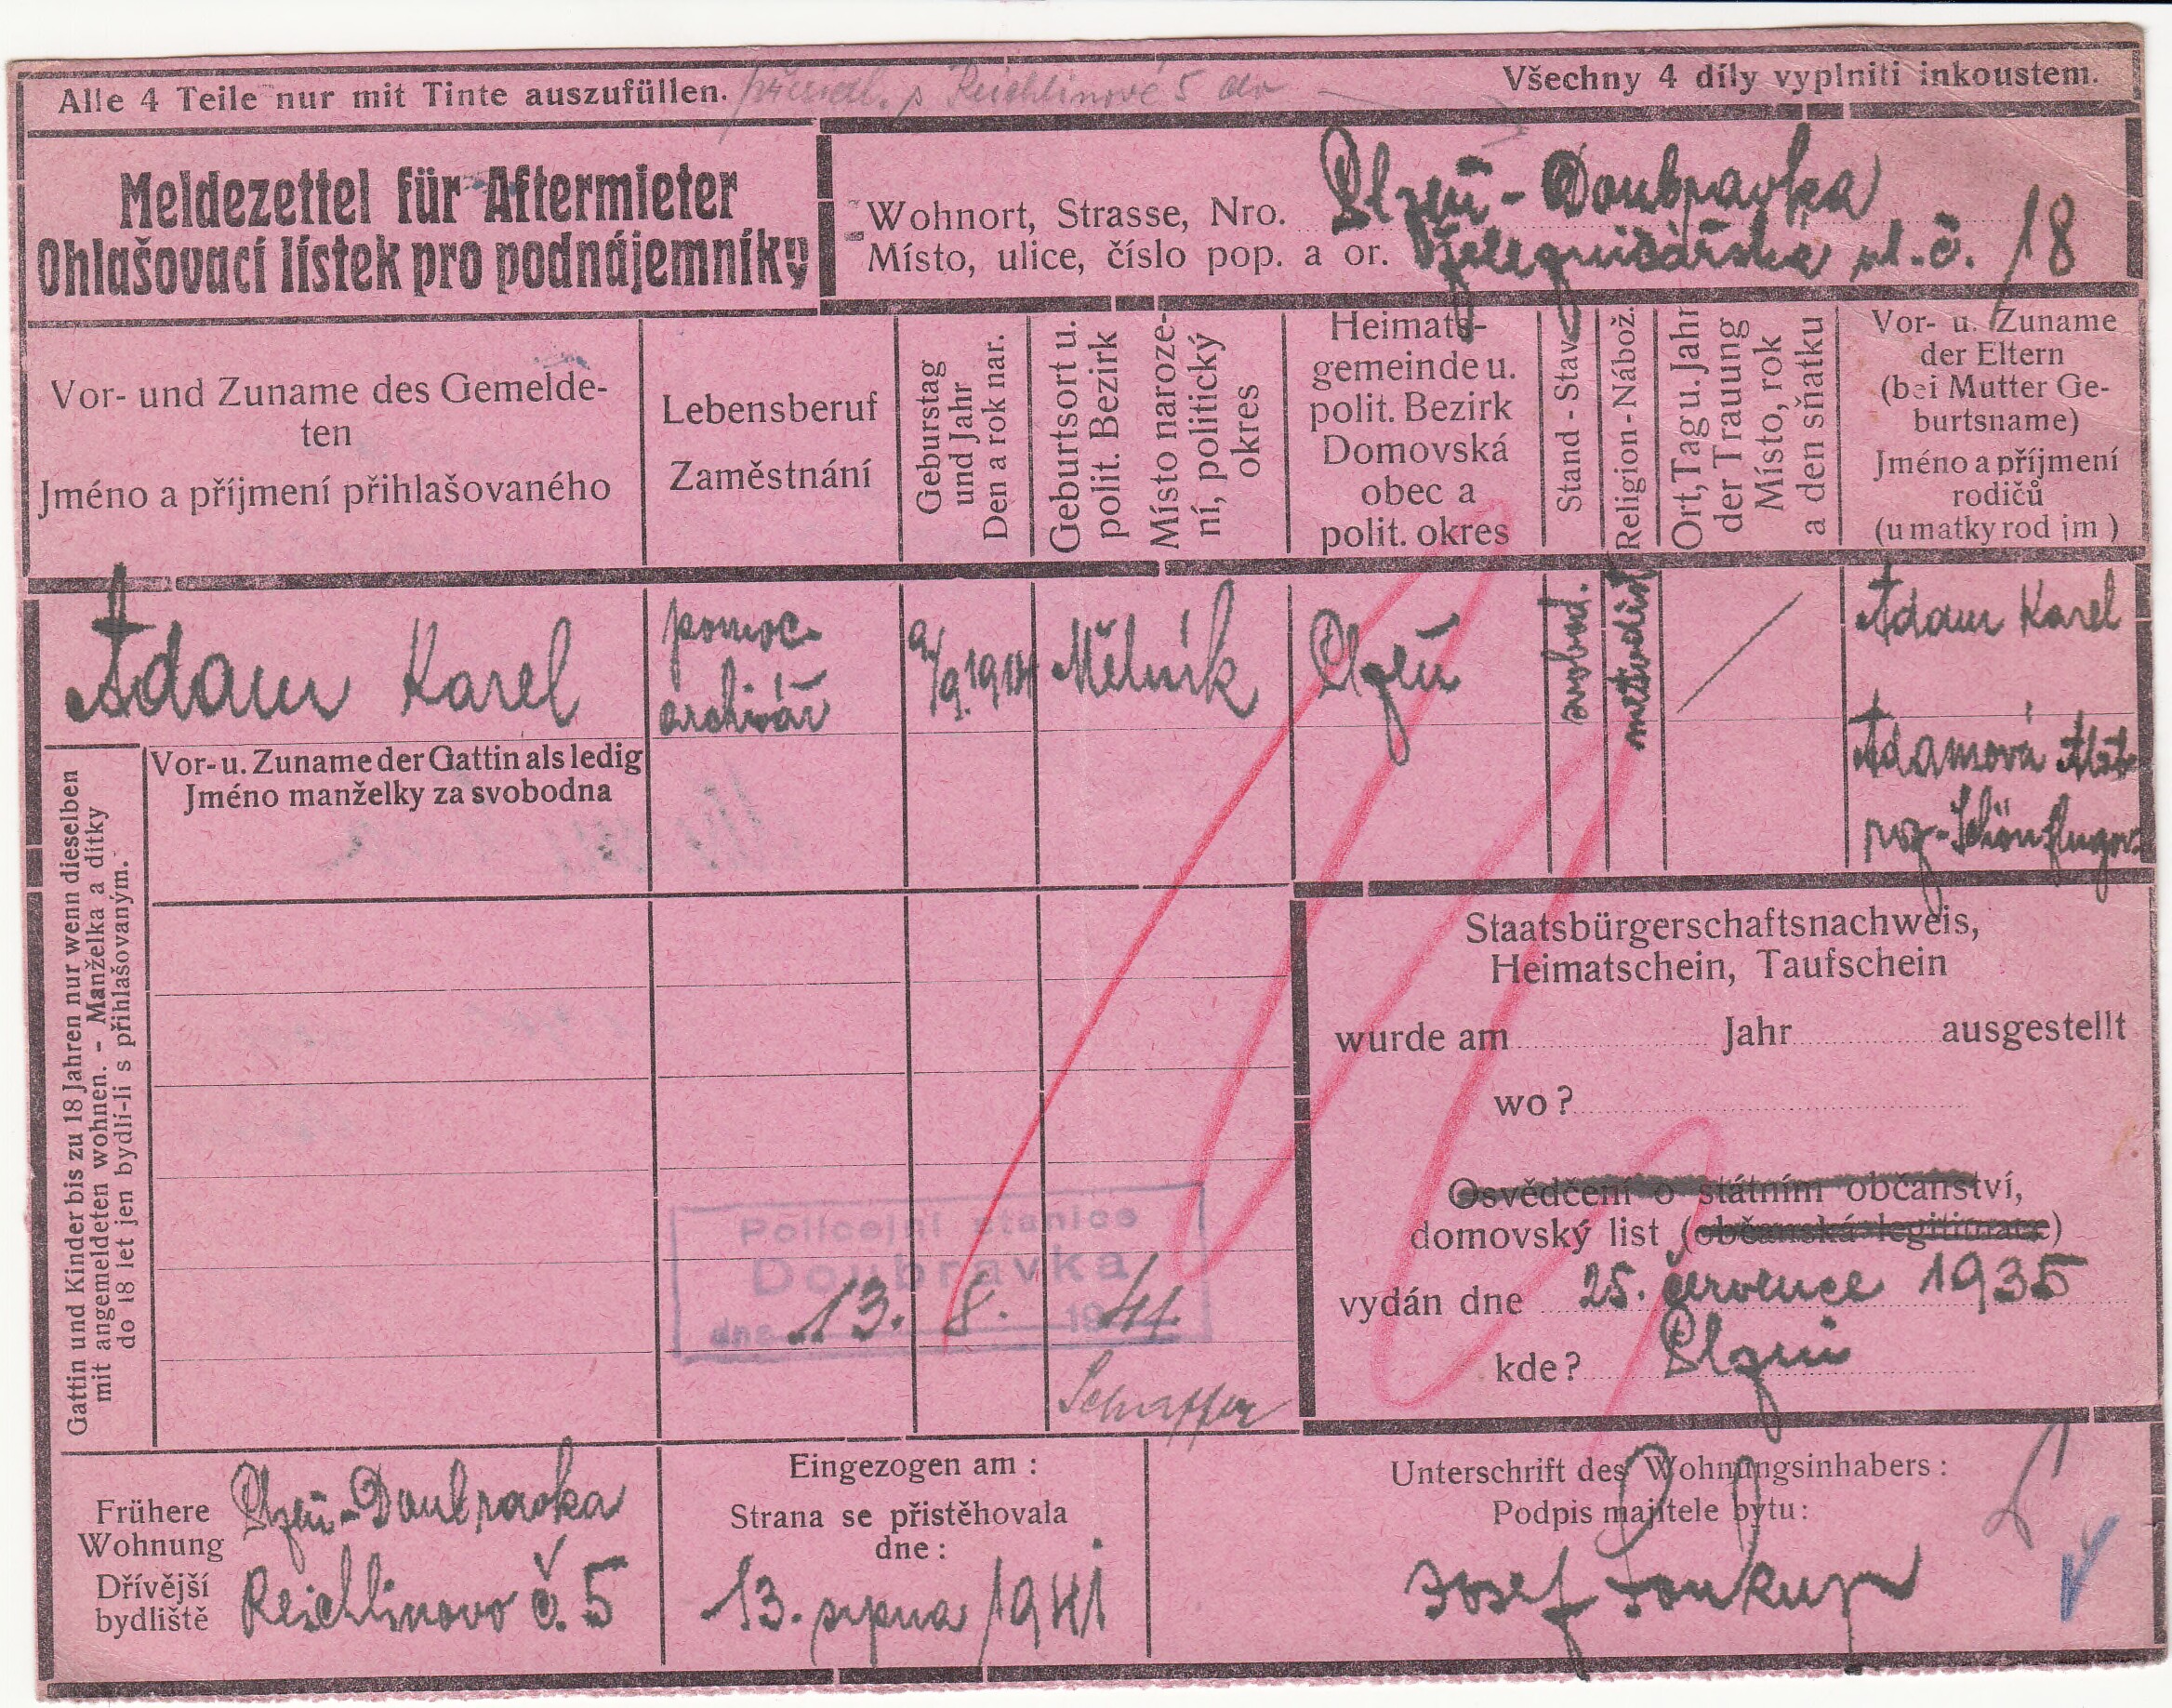 Alle 4 Teile nur mit Tinte auszufüllen.
Reichlinové 5 do
Všechny 4 díly vyplniti inkoustem.
Meldezettel für Aftermieter
Ohlašovací lístek pro podnájemníky
Wohnort, Strasse, Nro.
Místo, ulice, číslo pop. a or.
Plzeň-Doubravka
Železničářská ul. č. 18
Vor- und Zuname des Gemelde-
ten
Jméno a příjmení přihlašovaného
Lebensberuf
Zaměstnání
Geburstag
und Jahr
Den a rok nar.
Geburtsort u.
polit. Bezirk
Místo naroze-
ní, politický
okres
Heimats-
gemeinde u.
polit. Bezirk
Domovská
obec a
polit. okres
Stand - Stav
Religion - Nábož.
Ort, Tag u. Jahr
der Trauung
Místo, rok
a den sňatku
Vor- u. Zuname
der Eltern
(bei Mutter Ge-
burtsname)
Jméno a příjmení
rodičů
(u matky rod jm )
Adam Karel
pomoc.
archivář
9./9. 1914
Mělník
Plzeň
svobod.
metodist
Adam Karel
Adamová
roz. Schönflugov
Vor- u. Zuname der Gattin als ledig
Jméno manželky za svobodna
Gattin und Kinder bis zu 18 Jahren nur wenn dieselben
mit angemeldeten wohnen. - Manželka a dítky
do 18 let jen bydlí-li s přihlašovaným.
Policejní stanice
Doubravka
dne 13. 8. 1941.
Staatsbürgerschaftsnachweis,
Heimatschein, Taufschein
wurde am Jahr ausgestellt
wo?
Osvědčení o státním občanství,
domovský list (občanská legitimace)
vydán dne 25. července 1935
kde? Plzeň
Frühere
Wohnung
Dřívější
bydliště
Plzeň-Doubravka
Reichlinovo č. 5
Eingezogen am :
Strana se přistěhovala
dne :
13. srpna 1941
Unterschrift des Wohnungsinhabers :
Podpis majitele bytu :
Josef Soukup